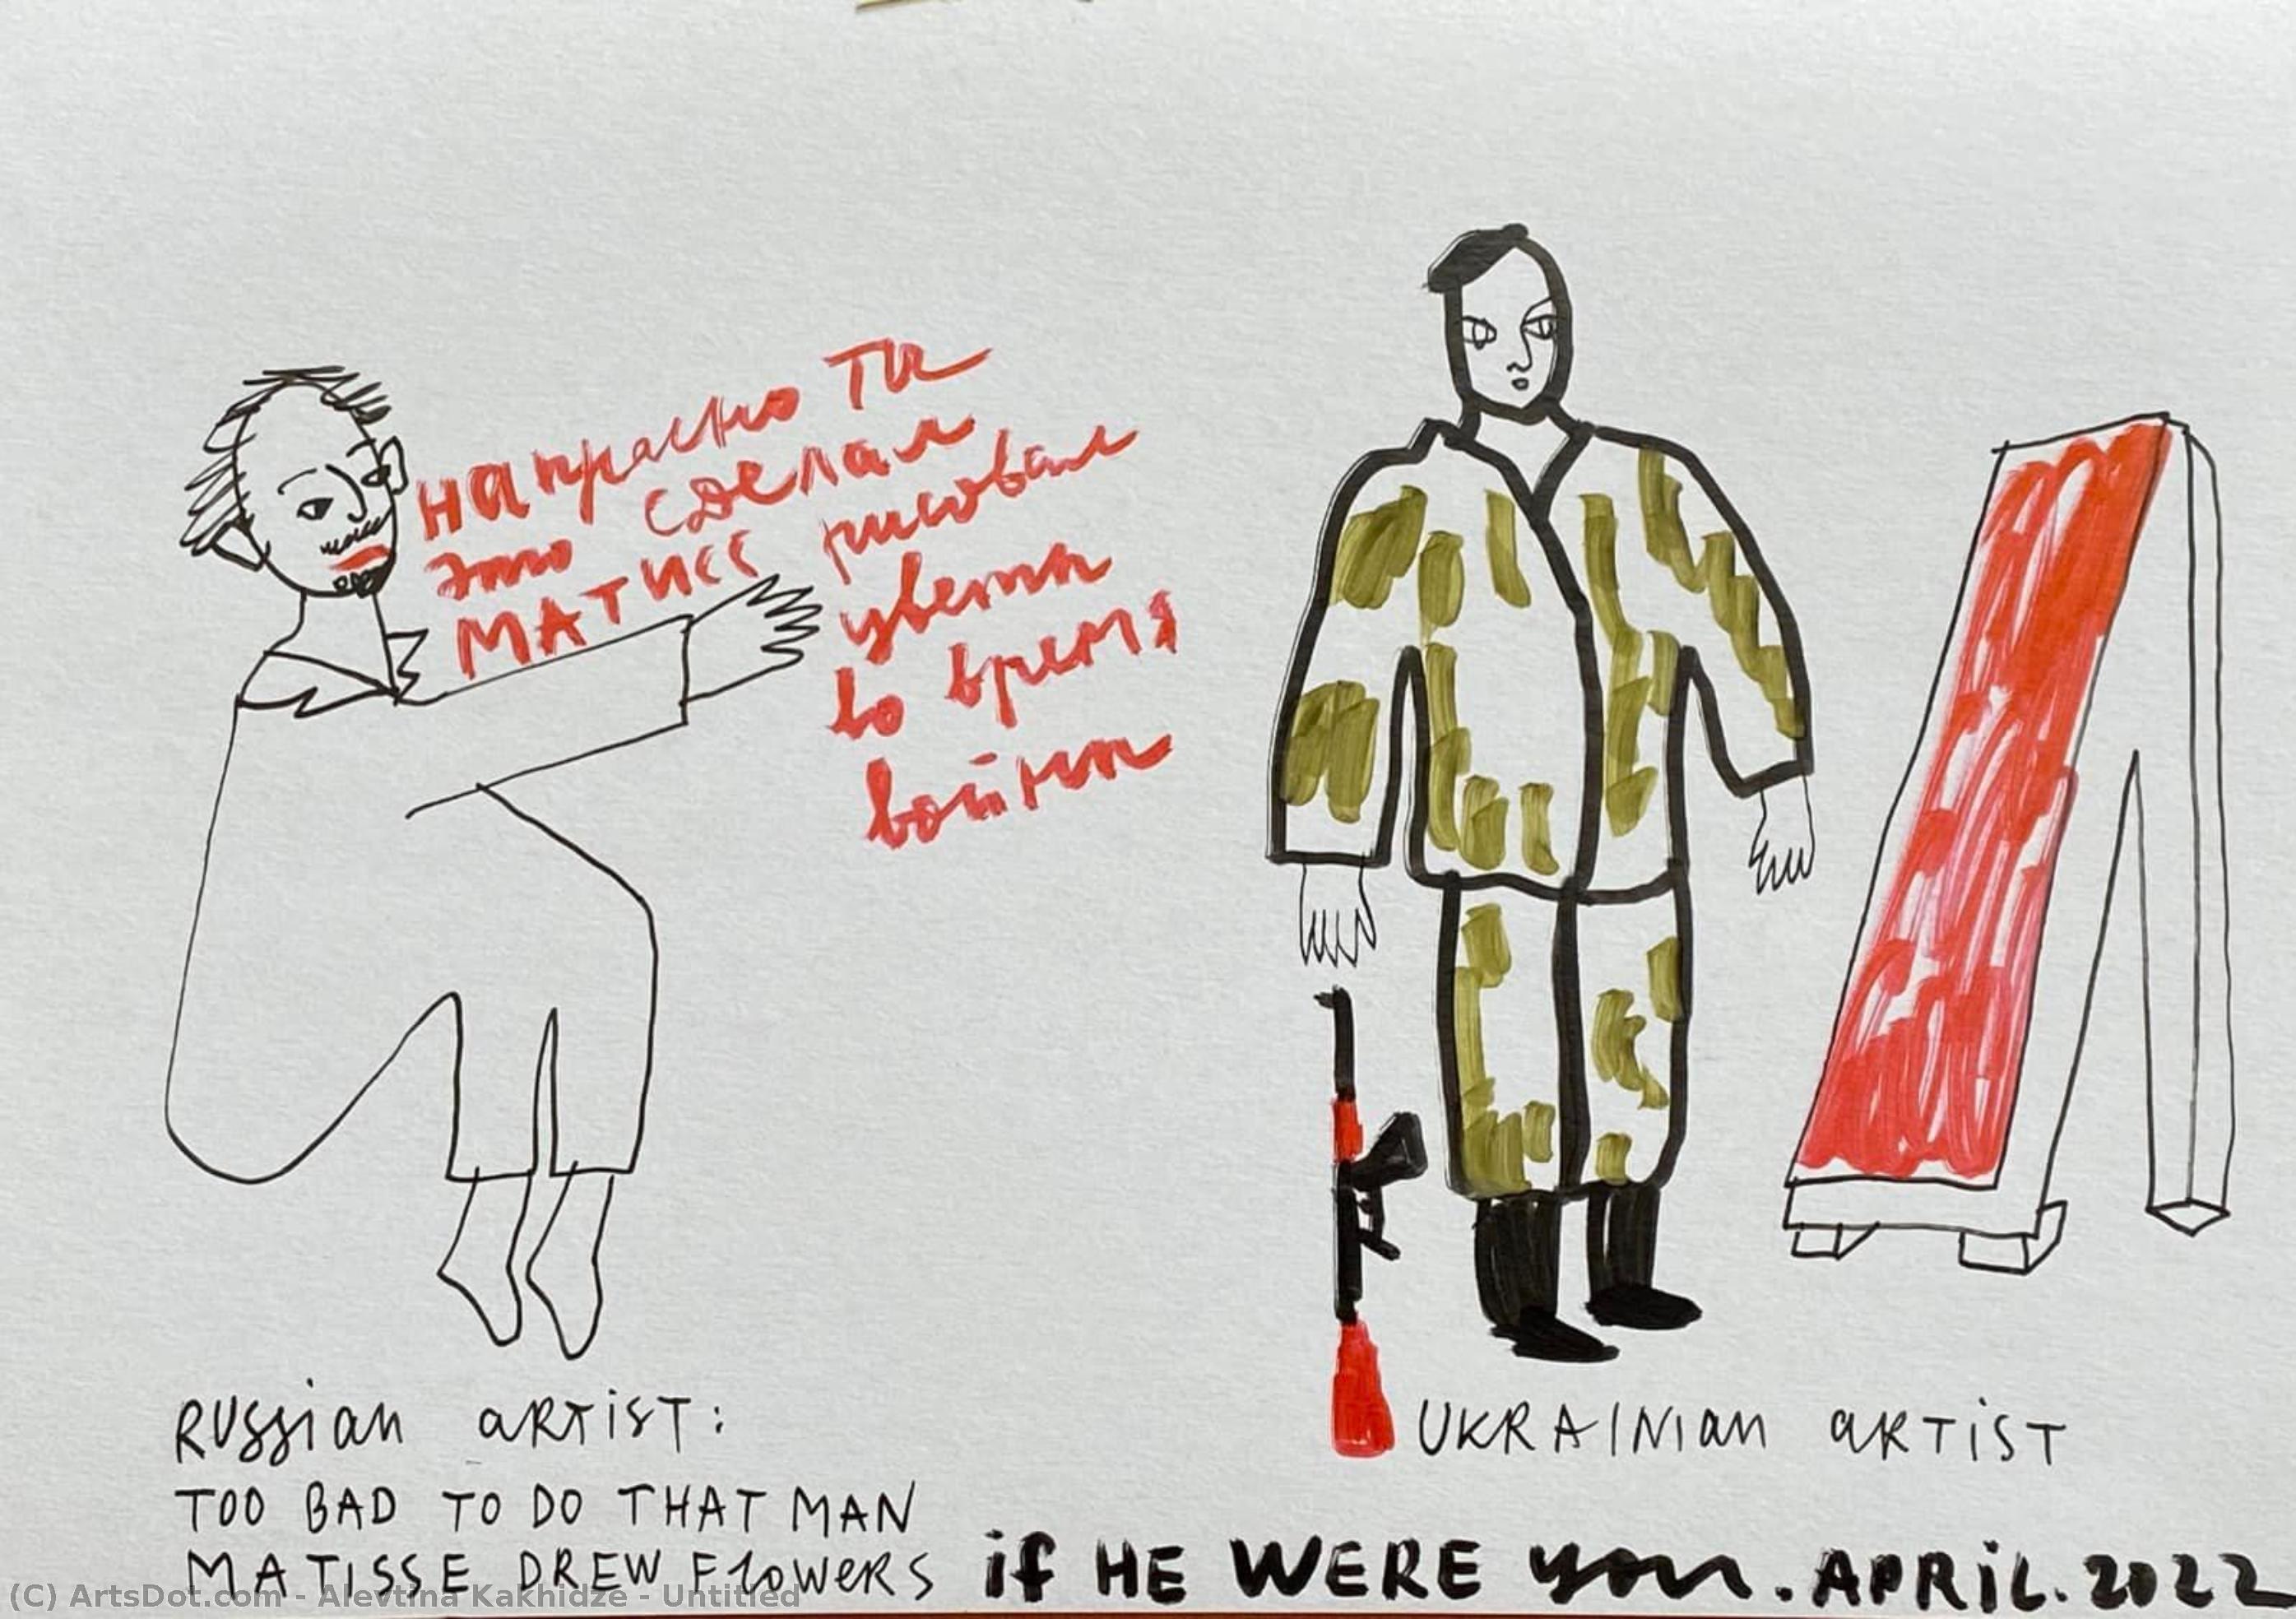 напрасно ты
это сделал
МАТИСС рисовал
цветы
во время
войны
RUSSIAN ARTIST:
TOO BAD TO DO THAT MAN
MATISSE DREW FLOWERS
UKRAINIAN ARTIST
if HE WERE you. APRIL. 2022
(C) ArtsDot.com - Alevtina Kakhidze - Untitled